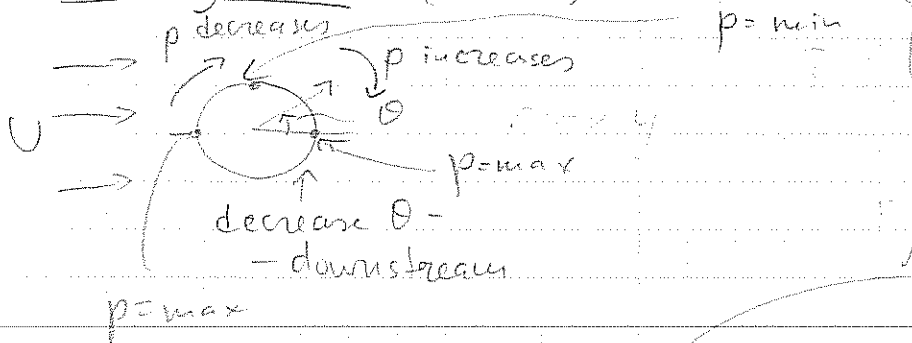 p decreases
p = min
p increases
U
θ
p = max
decrease θ -
- downstream
p = max